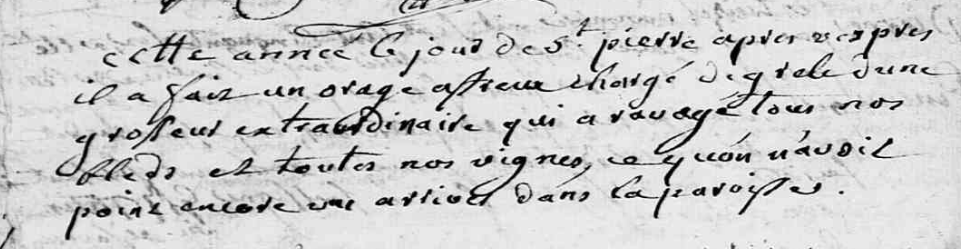 cette année le jour de St. pierre apres vespres
il a fait un orage affreux chargé de grele d'une
grosseur extraordinaire qui a ravagé tous nos
bleds et toutes nos vignes, ce qu'on n'avoit
point encore vue arriver dans la paroisse.